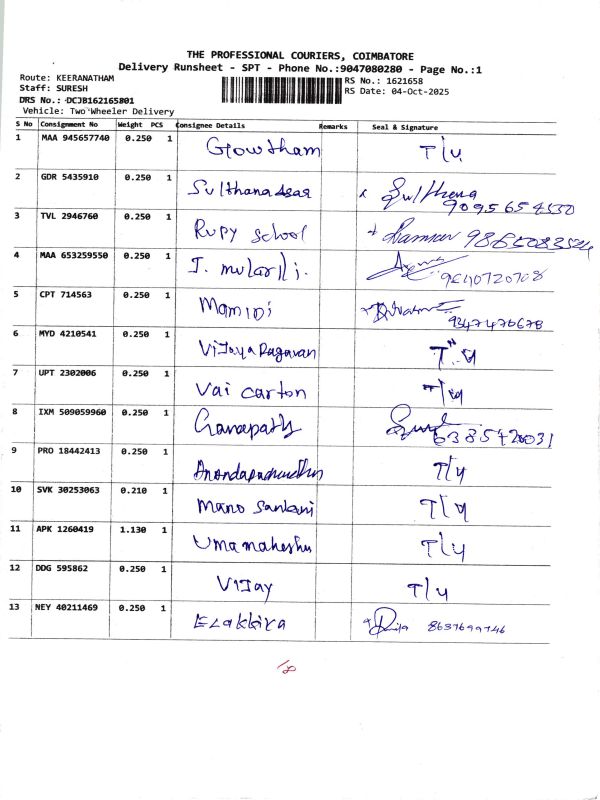 THE PROFESSIONAL COURIERS, COIMBATORE
Delivery Runsheet - SPT - Phone No.:9047080280 - Page No.:1
Route: KEERANATHAM
RS No.: 1621658
Staff: SURESH
RS Date: 04-Oct-2025
DRS No.: DCJB162165801
Vehicle: Two Wheeler Delivery
S No Consignment No Weight PCS Consignee Details Remarks Seal & Signature
1 MAA 945657740 0.250 1 Gowtham T/y
2 GDR 5435910 0.250 1 Sulthana x Sulthana
9095654550
3 TVL 2946760 0.250 1 Rupy school
4 MAA 653259550 0.250 1 J.
9640720708
5 CPT 714563 0.250 1
9347476678
6 MYD 4210541 0.250 1 Vijaya Ragavan T/y
7 UPT 2302006 0.250 1 Vai carton T/y
8 IXM 509059960 0.250 1 Ganapathy
9 PRO 18442413 0.250 1 T/y
10 SVK 30253063 0.210 1 Mano Sankari T/y
11 APK 1260419 1.130 1 T/y
12 DDG 595862 0.250 1 Vijay T/y
13 NEY 40211469 0.250 1 Elakkiya 8637699746